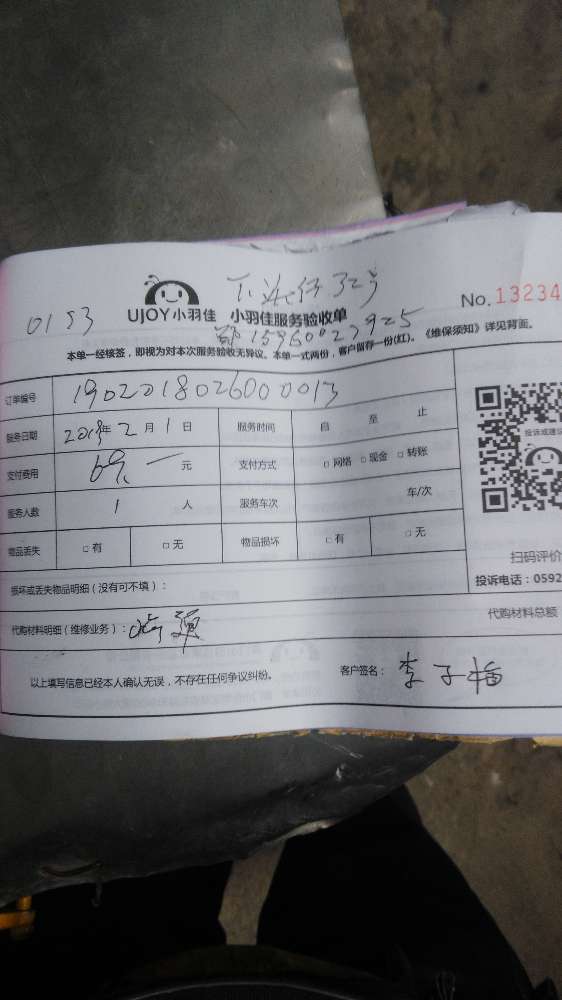 No. 13234
0153
UJOY小羽佳 小羽佳服务验收单
15960023925
本单一经核签，即视为对本次服务验收无异议。本单一式两份，客户留存一份(红)。《维保须知》详见背面。
订单编号 1902018026000013
服务日期 2019年2月1日 服务时间 自 至 止
支付费用 69. 元 支付方式 □网络 □现金 □转账
服务人数 1 人 服务车次 车/次
物品丢失 □有 □无 物品损坏 □有 □无
投诉或建议
扫码评价
投诉电话：0592
损坏或丢失物品明细（没有可不填）：
代购材料明细（维修业务）：
代购材料总额
以上填写信息已经本人确认无误，不存在任何争议纠纷。
客户签名：李子梅